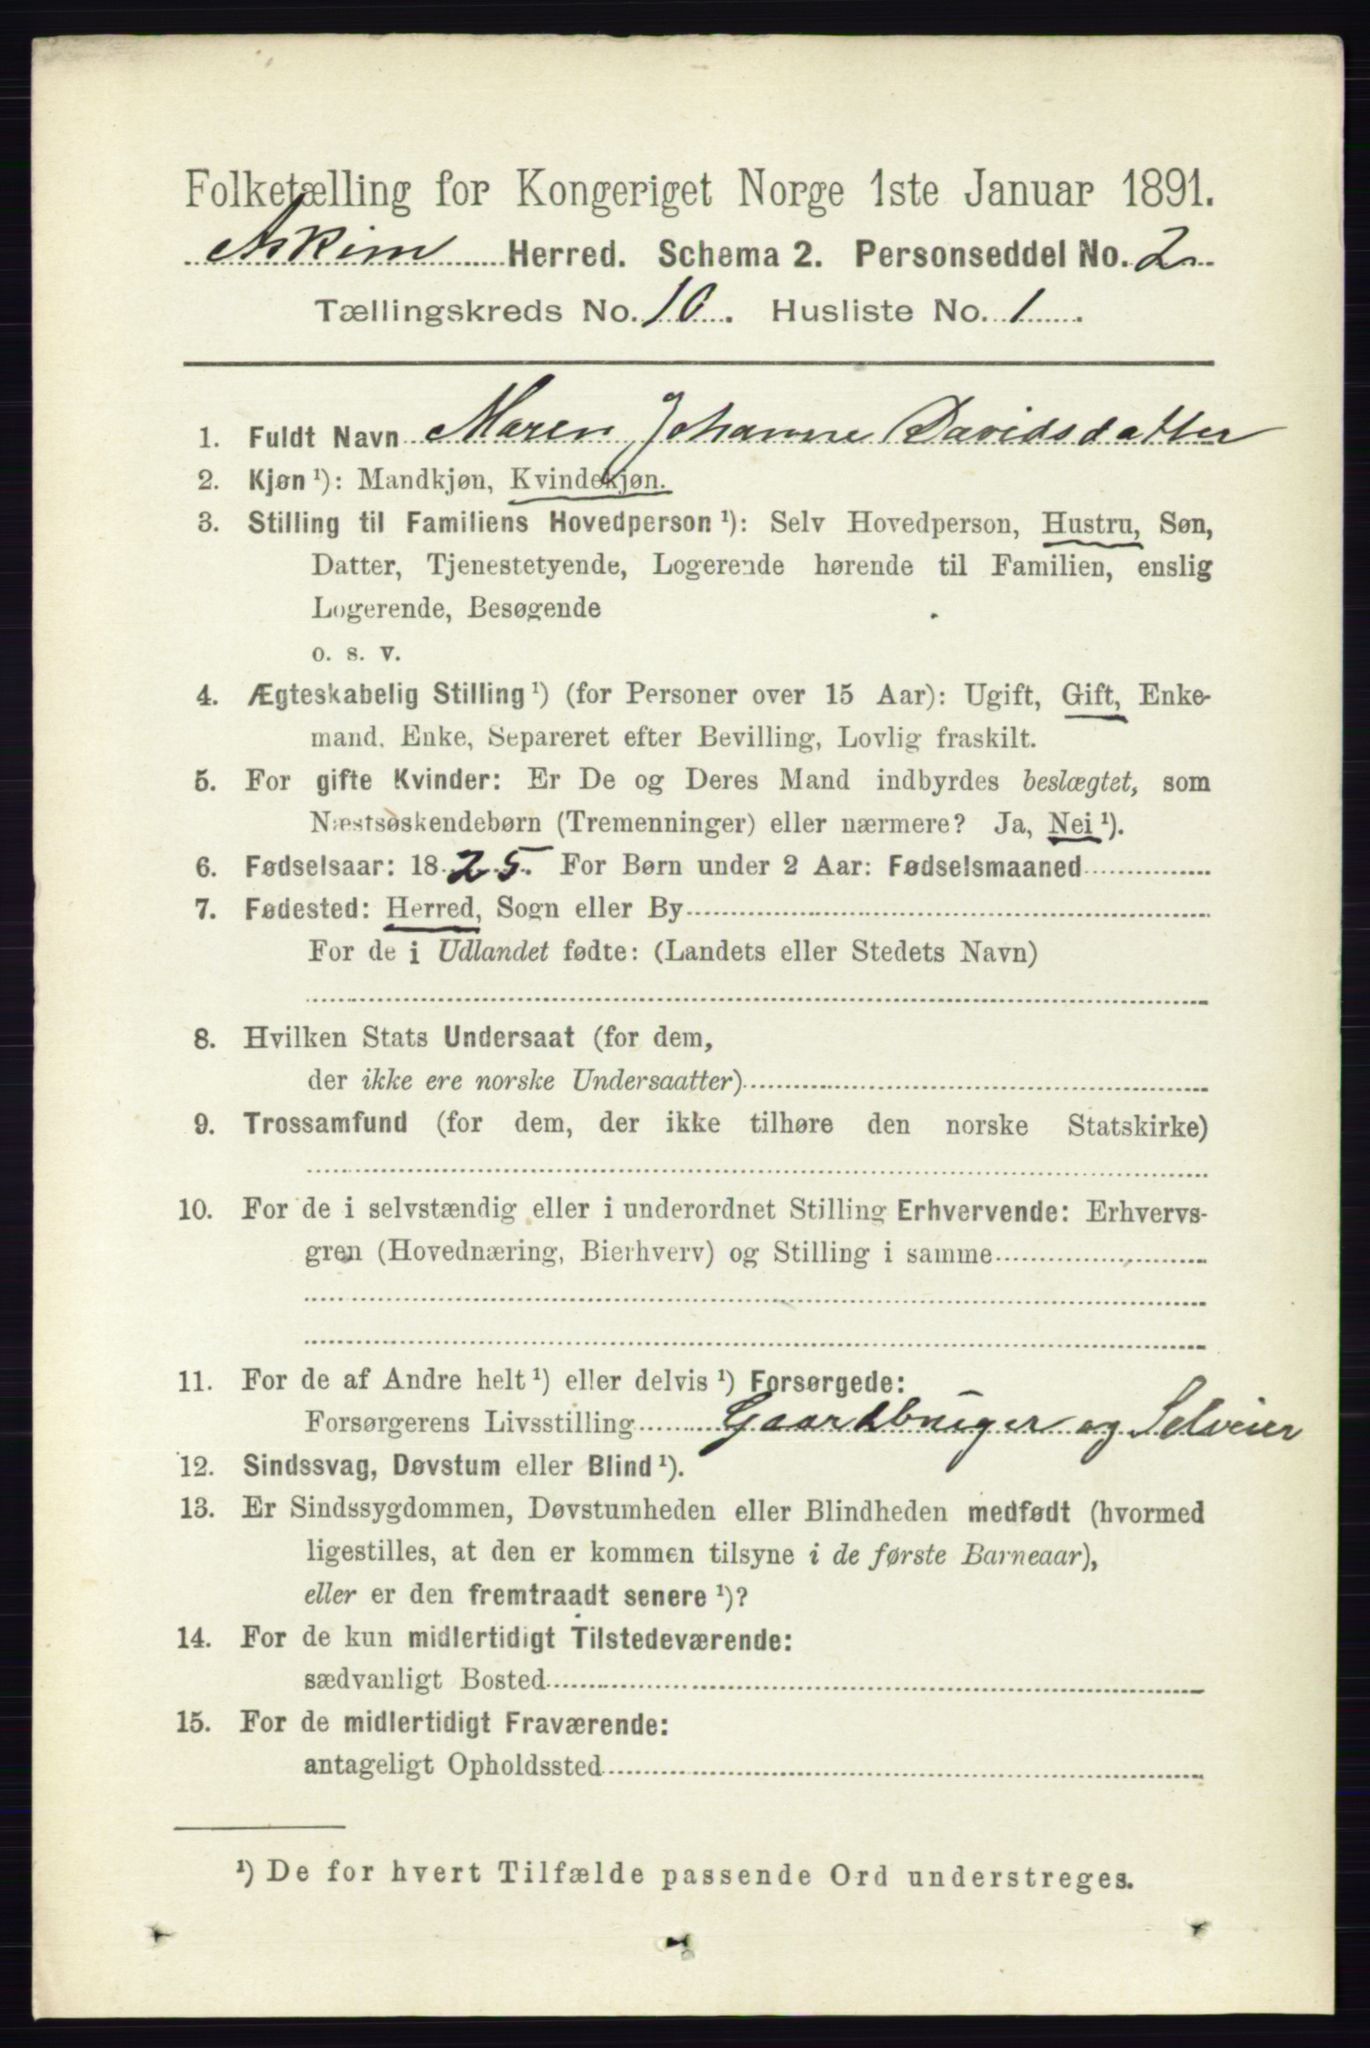 Folketælling for Kongeriget Norge 1ste Januar 1891.
Askim Herred. Schema 2. Personseddel No. 2
Tællingskreds No. 10. Husliste No. 1.
1. Fuldt Navn Maren Johanne Davidsdatter
2. Kjøn¹): Mandkjøn, Kvindekjøn.
3. Stilling til Familiens Hovedperson¹): Selv Hovedperson, Hustru, Søn,
Datter, Tjenestetyende, Logerende hørende til Familien, enslig
Logerende, Besøgende
o. s. v.
4. Ægteskabelig Stilling¹) (for Personer over 15 Aar): Ugift, Gift, Enke-
mand, Enke, Separeret efter Bevilling, Lovlig fraskilt.
5. For gifte Kvinder: Er De og Deres Mand indbyrdes beslægtet, som
Næstsøskendebørn (Tremenninger) eller nærmere? Ja, Nei¹).
6. Fødselsaar: 1825. For Børn under 2 Aar: Fødselsmaaned
7. Fødested: Herred, Sogn eller By
For de i Udlandet fødte: (Landets eller Stedets Navn)
8. Hvilken Stats Undersaat (for dem,
der ikke ere norske Undersaatter)
9. Trossamfund (for dem, der ikke tilhøre den norske Statskirke)
10. For de i selvstændig eller i underordnet Stilling Erhvervende: Erhvervs-
gren (Hovednæring, Bierhverv) og Stilling i samme
11. For de af Andre helt¹) eller delvis¹) Forsørgede:
Forsørgerens Livsstilling Gaardbruger og Selveier
12. Sindssvag, Døvstum eller Blind¹).
13. Er Sindssygdommen, Døvstumheden eller Blindheden medfødt (hvormed
ligestilles, at den er kommen tilsyne i de første Barneaar),
eller er den fremtraadt senere¹)?
14. For de kun midlertidigt Tilstedeværende:
sædvanligt Bosted
15. For de midlertidigt Fraværende:
antageligt Opholdssted
¹) De for hvert Tilfælde passende Ord understreges.